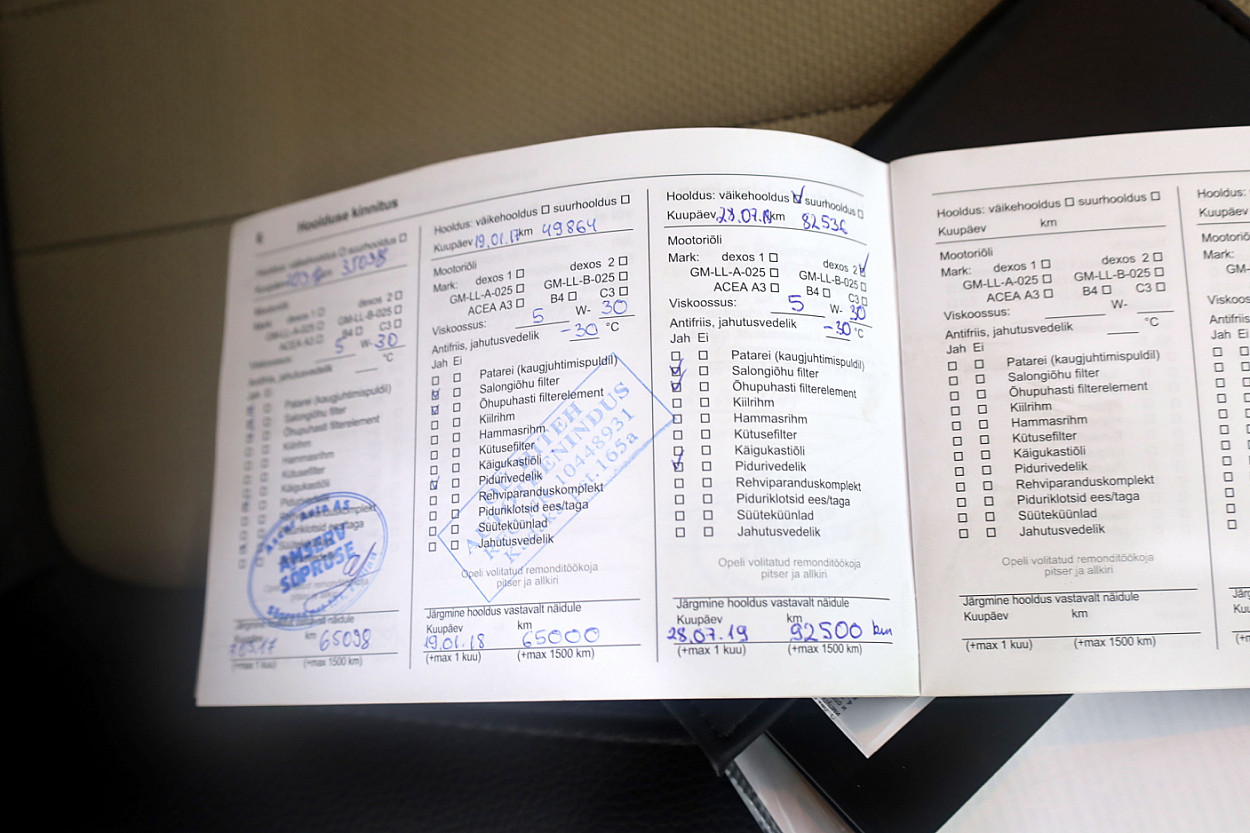 Hoolduse kinnitus
Hooldus: väikehooldus suurhooldus
km 35098
Mootoriõli
dexos 2
Mark: dexos 1
GM-LL-A-025 GM-LL-B-025
ACEA A3 B4 C3
Viskoossus: 5 W-30
Antifriis, jahutusvedelik °C
Jah Ei
Patarei (kaugjuhtimispuldil)
Salongiõhu filter
Õhupuhasti filterelement
Kiilrihm
Hammasrihm
Kütusefilter
Käigukastiõli
Pidurivedelik
AMSERV
SÕPRUSE
Järgmine hooldus vastavalt näidule
Kuupäev km
65098
(+max 1 kuu) (+max 1500 km)
Hooldus: väikehooldus suurhooldus
Kuupäev 19.01.17 km 49864
Mootoriõli
Mark: dexos 1 dexos 2
GM-LL-A-025 GM-LL-B-025
ACEA A3 B4 C3
Viskoossus: 5 W- 30
Antifriis, jahutusvedelik -30 °C
Jah Ei
Patarei (kaugjuhtimispuldil)
Salongiõhu filter
Õhupuhasti filterelement
Kiilrihm
Hammasrihm
Kütusefilter
Käigukastiõli
Pidurivedelik
Rehviparanduskomplekt
Piduriklotsid ees/taga
Süüteküünlad
Jahutusvedelik
10448931
165a
Opeli volitatud remonditöökoja
pitser ja allkiri
Järgmine hooldus vastavalt näidule
Kuupäev km
19.01.18 65000
(+max 1 kuu) (+max 1500 km)
Hooldus: väikehooldus suurhooldus
Kuupäev 28.07.18 km 82536
Mootoriõli
Mark: dexos 1 dexos 2
GM-LL-A-025 GM-LL-B-025
ACEA A3 B4 C3
Viskoossus: 5 W- 30
Antifriis, jahutusvedelik -30 °C
Jah Ei
Patarei (kaugjuhtimispuldil)
Salongiõhu filter
Õhupuhasti filterelement
Kiilrihm
Hammasrihm
Kütusefilter
Käigukastiõli
Pidurivedelik
Rehviparanduskomplekt
Piduriklotsid ees/taga
Süüteküünlad
Jahutusvedelik
Opeli volitatud remonditöökoja
pitser ja allkiri
Järgmine hooldus vastavalt näidule
Kuupäev km
28.07.19 92500 km
(+max 1 kuu) (+max 1500 km)
Hooldus: väikehooldus suurhooldus
Kuupäev km
Mootoriõli
Mark: dexos 1 dexos 2
GM-LL-A-025 GM-LL-B-025
ACEA A3 B4 C3
Viskoossus: W-
Antifriis, jahutusvedelik °C
Jah Ei
Patarei (kaugjuhtimispuldil)
Salongiõhu filter
Õhupuhasti filterelement
Kiilrihm
Hammasrihm
Kütusefilter
Käigukastiõli
Pidurivedelik
Rehviparanduskomplekt
Piduriklotsid ees/taga
Süüteküünlad
Jahutusvedelik
Opeli volitatud remonditöökoja
pitser ja allkiri
Järgmine hooldus vastavalt näidule
Kuupäev km
(+max 1 kuu) (+max 1500 km)
Hooldus:
Kuupäev
Mark:
Jah Ei